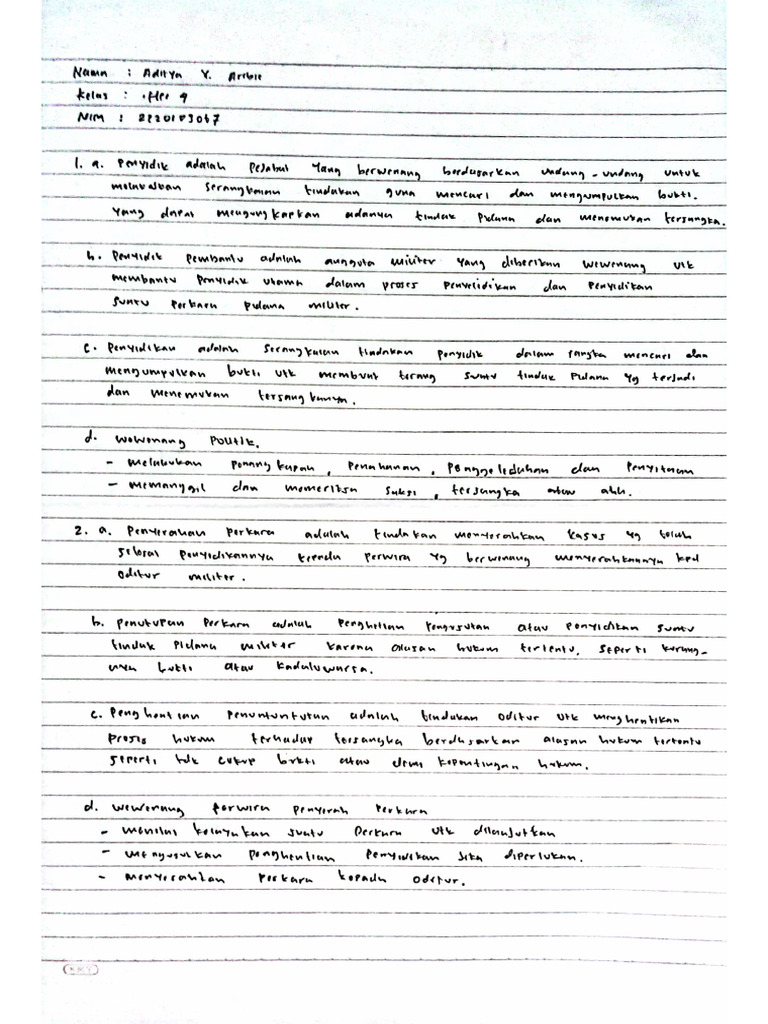 Nama : Aditya Y. Arbie
Kelas : Her 4
NIM : 2220103067
1. a. Penyidik adalah pejabat yang berwenang berdasarkan undang-undang untuk
melakukan serangkaian tindakan guna mencari dan mengumpulkan bukti.
yang dapat mengungkapkan adanya tindak pidana dan menemukan tersangka.
b. Penyidik pembantu adalah anggota militer yang diberikan wewenang utk
membantu penyidik utama dalam proses penyelidikan dan penyidikan
suatu perkara pidana militer.
c. Penyidikan adalah serangkaian tindakan penyidik dalam rangka mencari dan
mengumpulkan bukti utk membuat terang suatu tindak pidana yg terjadi
dan menemukan tersangkanya.
d. wewenang
- melakukan penangkapan, penahanan, penggeledahan dan penyitaan
- memanggil dan memeriksa saksi, tersangka atau ahli.
2. a. Penyerahan perkara adalah tindakan menyerahkan kasus yg telah
selesai penyidikannya kepada perwira yg berwenang menyerahkannya kpd
oditur militer.
b. penutupan perkara adalah penghetian pengusutan atau penyidikan suatu
tindak pidana militer karena alasan hukum tertentu, seperti kurang-
nya bukti atau kadaluwarsa.
c. Penghentian penuntuntutan adalah tindakan oditur utk menghentikan
proses hukum terhadap tersangka berdasarkan alasan hukum tertentu
seperti tdk cukup bukti atau demi kepentingan hukum.
d. wewenang perwira penyerah perkara
- menilai kelayakan suatu perkara utk dilanjutkan
- mengusulkan penghentian penyidikan jika diperlukan.
- menyerahkan perkara kepada oditur.
KKY